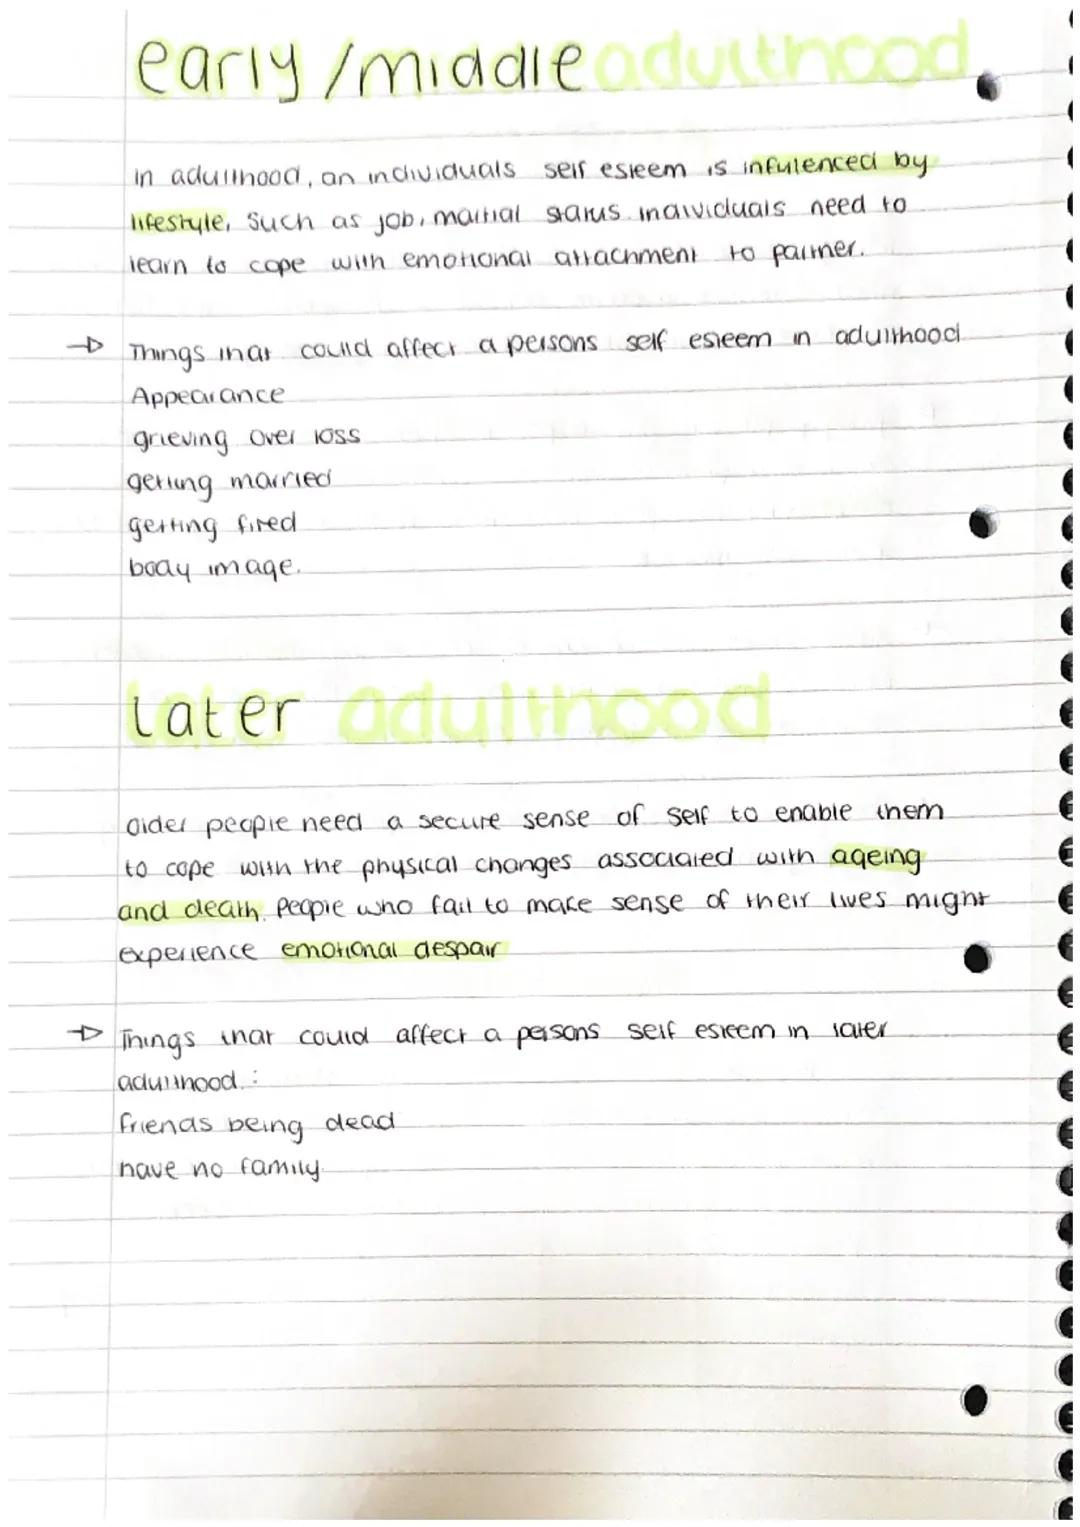 early/middle adulthood
in adulthood, an individuals self esteem is infulenced by
lifestyle, such as job, maritial status. individuals need to
learn to cope with emotional attachment to partner.
→ Things that could affect a persons self esteem in adulthood
Appearance
grieving over loss
getting married
getting fired
body image.
later adulthood
older people need a secure sense of self to enable them
to cope with the physical changes associated with ageing
and death. People who fail to make sense of their lives might
experience emotional despair
→ Things that could affect a persons self esteem in later
adulthood :
friends being dead
have no family.